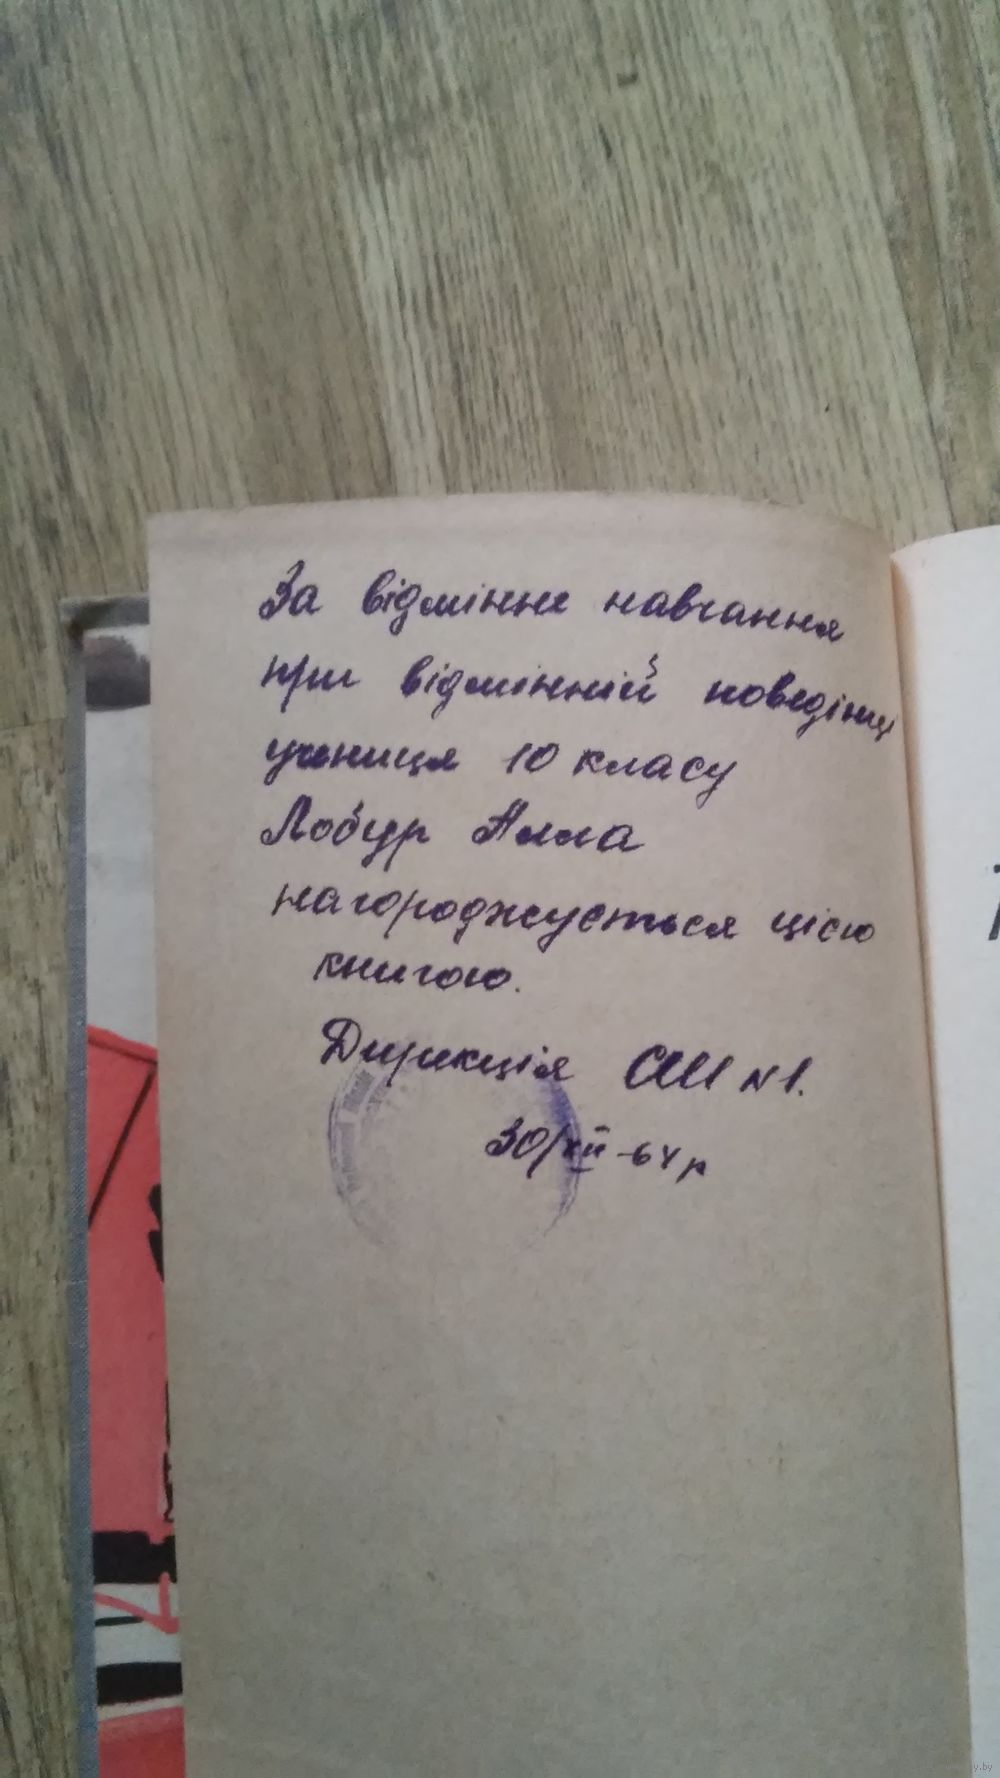 За відмінне навчання
при відмінній поведінці
учениця 10 класу
Лобур Алла
нагороджується цією
книгою.
Дирекція СШ N 1.
30/XII-64 р